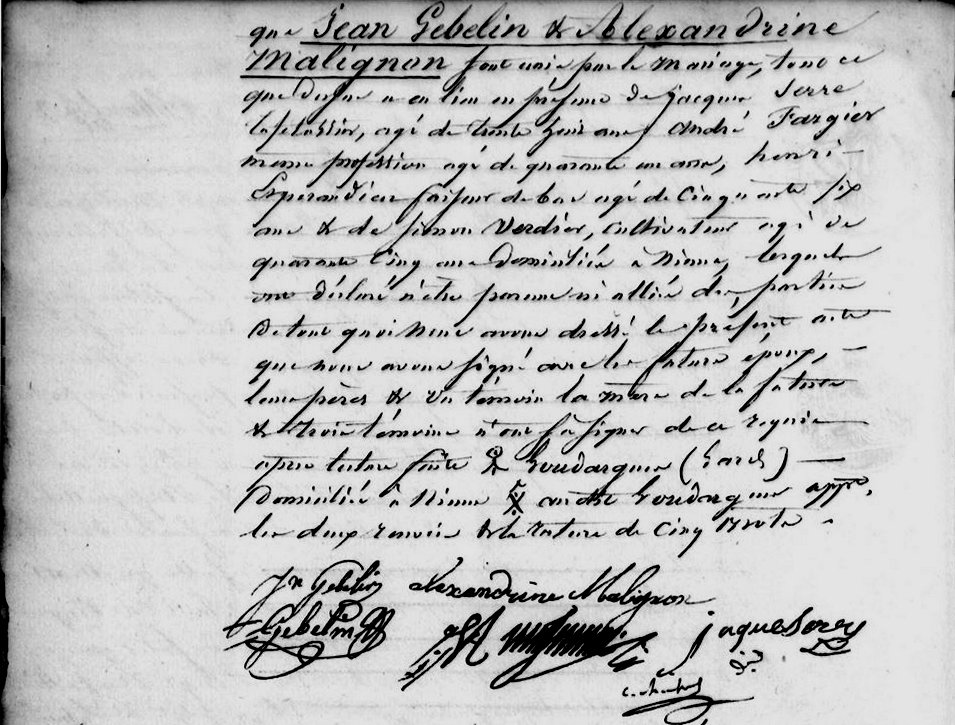 que Jean Gebelin & Alexandrine
Malignon sont unis par le mariage, tout ce
que dessus a eu lieu en présence de Jacques Serre
taffetassier, agé de trente huit ans, André Fargier
meme profession agé de quarante un ans, henri
Esperandieu faiseur de bas agé de Cinquante six
ans & de simon Verdier, cultivateur agé de
quarante Cinq ans domiciliés à Nismes, lesquels
ont déclaré n'etre parens ni alliés des parties
De tout quoi Nous avons dressé le présent acte
que nous avons signé avec les futurs époux,
leurs pères & un témoin la mere de la future
& trois témoins n'ont sû signer de ce requis
apres lecture faite Goudargues (Gard)
Domiciliés à Nismes Goudargues appr.
les deux renvois & la rature de Cinq mots
Jn Gebelin alexandrine Malignon
Gebelin jaque Serre